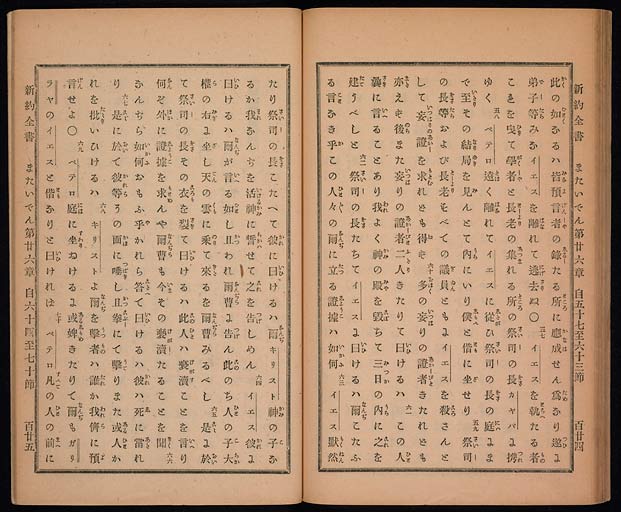 新約全書 またいでん第廿六章 自五十七至六十三節 百廿四
此の如なるハ皆預言者の錄たる所に應成せん爲なり遂に
弟子等みなイエスを離れて逃去ぬ〇 五七 イエスを執たる者
これを曳て學者と長老の集れる所の祭司の長カヤパに携
ゆく 五八 ペテロ遠く離れてイエスに從ひ祭司の長の庭にま
で至その結局を見んとて內にいり僕と偕に坐せり 五九 祭司
の長等および長老すべての議員ともにイエスを殺さんと
して妄の證を求れとも得ず 六十 多の妄りの證者きたれとも
亦えず後また妄りの證者二人きたりて曰けるハ 六一 この人
曩に言ることあり我よく神の殿を毀ちて三日の內に之を
建うべしと 六二 祭司の長たちてイエスに曰けるハ爾こたふ
る言なき乎この人々の爾に立る證據ハ如何 六三 イエス默然
たり祭司の長こたへて彼に曰けるハ爾キリスト神の子な
るか我なんぢを活神に誓せて之を告しめん 六四 イエス彼に
曰けるハ爾が言る如し且われ爾曹に告ん此のち人の子大
權の右に坐し天の雲に乘て來るを爾曹みるべし 六五 是に於
て祭司の長その衣を裂て曰けるハ此人ハ褻瀆たることを言り
何ぞ外に證據を求んや爾曹も今その褻瀆たることを聞 六六
なんぢら如何おもふ乎かれら答て曰けるハ彼ハ死に當れ
り 六七 是に於て彼等その面に唾し且拳にて擊りまた或人か
れを批いひけるハ 六八 キリストよ爾を擊者ハ誰か我儕に預
言せよ〇 六九 ペテロ庭に坐ゐけるに或婢きたりて爾もガリ
ラヤのイエスと偕なりと曰ければ 七十 ペテロ凡の人の前に
新約全書 またいでん第廿六章 自六十四至七十節 百廿五